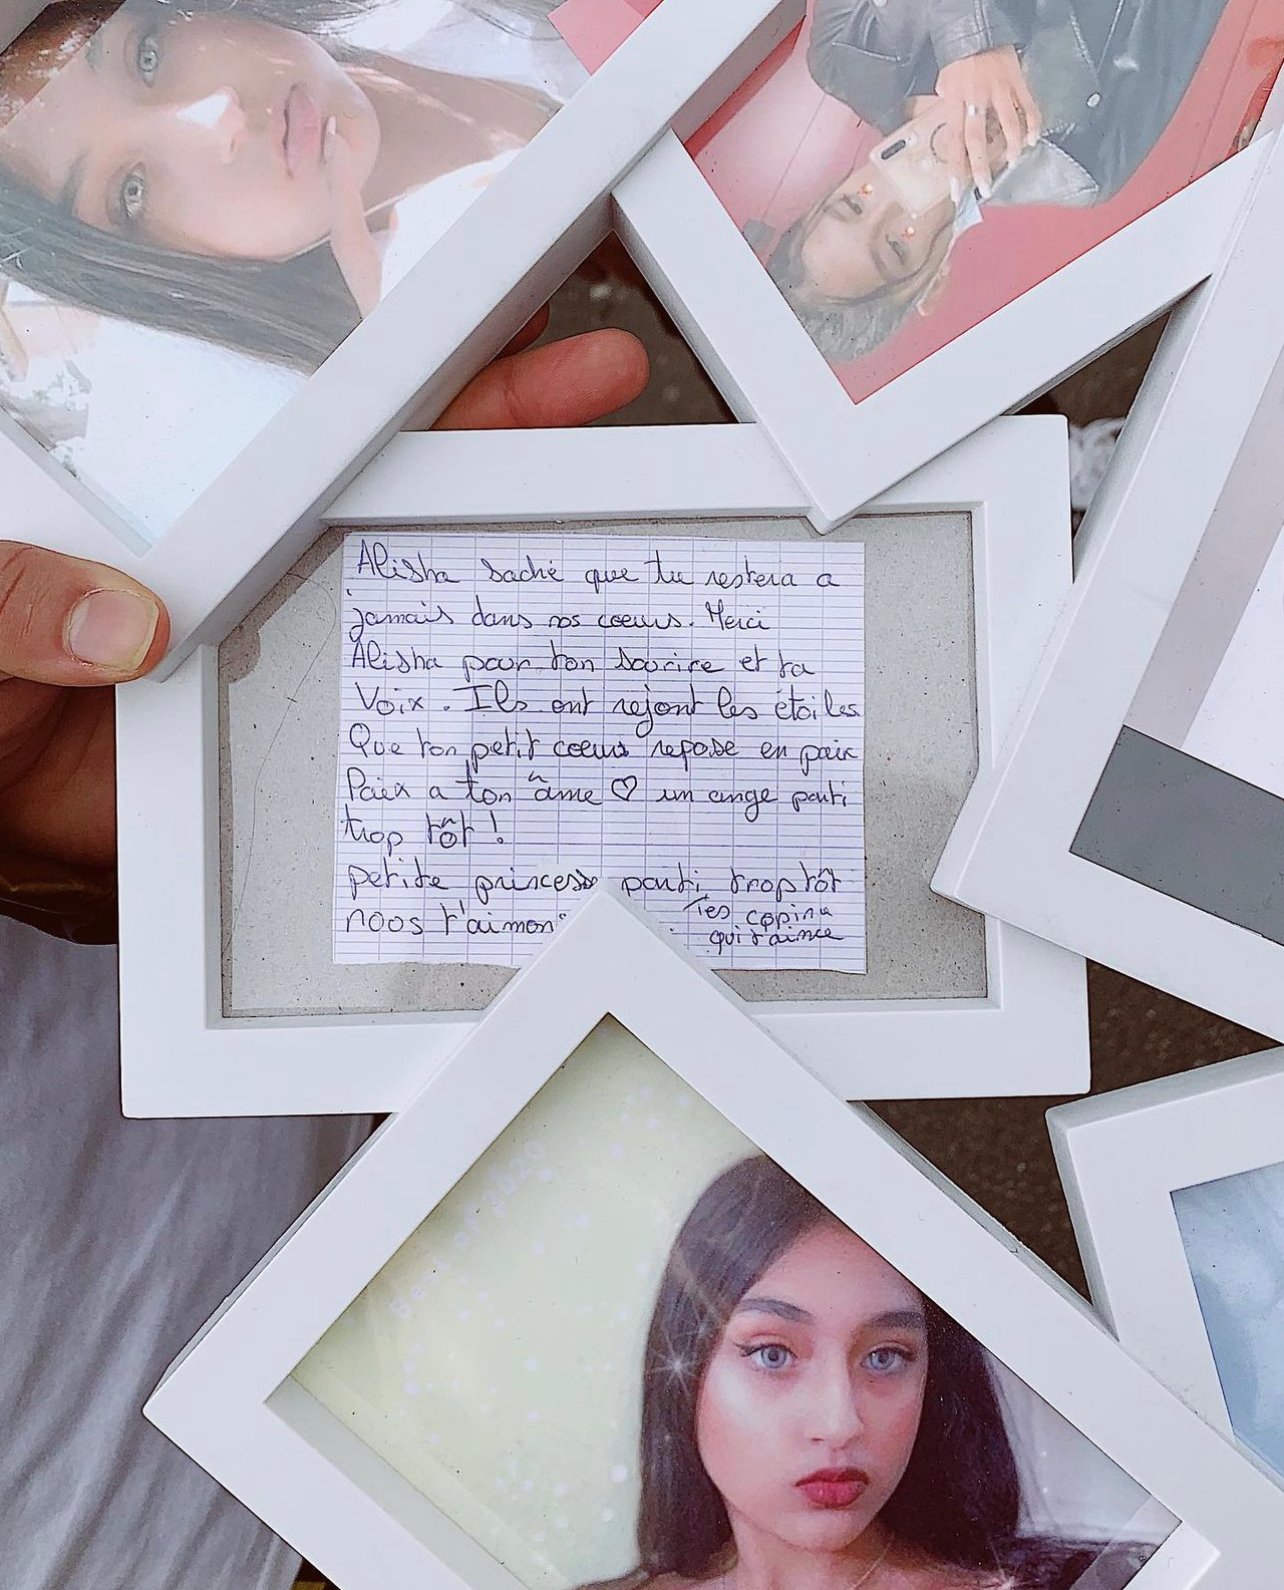 Alisha sache que tu restera a
jamais dans nos coeurs. Merci
Alisha pour ton sourire et ta
Voix. Ils ont rejont les étoiles
Que ton petit coeur repose en paix
Paix a ton âme ♡ un ange parti
trop tôt !
petite princess parti trop tôt
noos t'aimons
Tes copine
qui t'aime